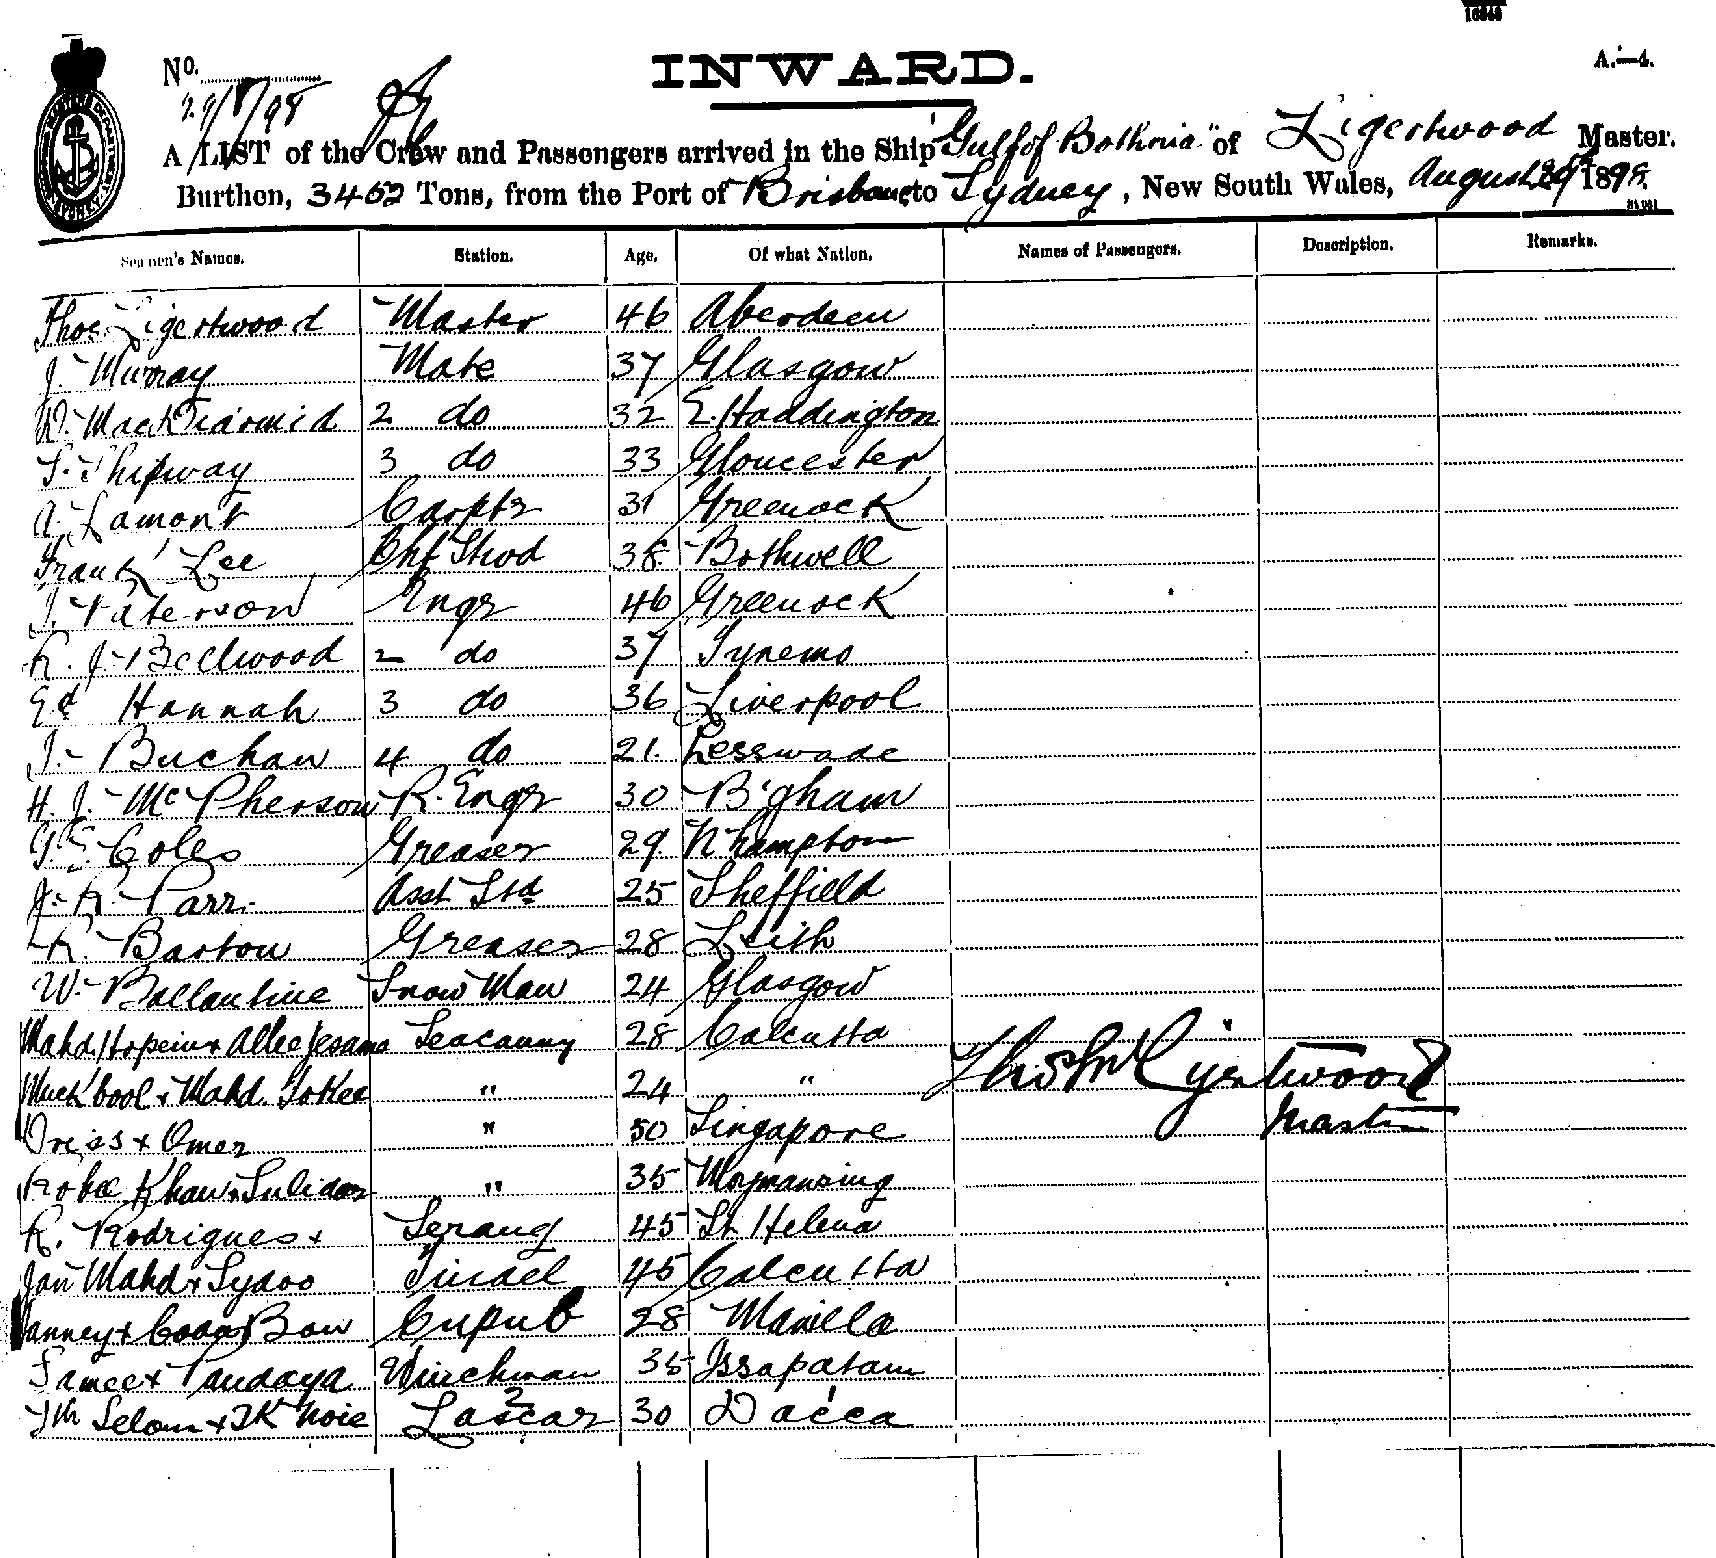 16040
INWARD.
A.—4.
No.
29/8/98
A LIST of the Crew and Passengers arrived in the Ship "Gulf of Bothnia" of Ligertwood Master.
Burthen, 3452 Tons, from the Port of Brisbane to Sydney, New South Wales, August 29 1898.
Seamen's Names. Station. Age. Of what Nation. Names of Passengers. Description. Remarks.
Thos. Ligertwood Master 46 Aberdeen
J. Murray Mate 37 Glasgow
D. MacDiarmid 2 do 32 E. Haddington
S. Shipway 3 do 33 Gloucester
A. Lamont Carptr 31 Greenock
Frank Lee Chf Stwd 38 Bothwell
J. Paterson Engr 46 Greenock
R. J. Bellwood 2 do 37 Tynemo
Ed Hannah 3 do 36 Liverpool
J. Buchan 4 do 21 Lesswade
H. J. McPherson R. Engr 30 B'gham
Coles Greaser 29 N'hampton
J. R. Parr. Asst Std 25 Sheffield
R. Barton Greaser 28 Leith
W. Ballantine Snow Man 24 Glasgow
Mahd. Seacunny 28 Calcutta
Muckbool x Mahd. Sokee " 24 "
Driss x Omer " 50 Singapore
Thos M Ligertwood
Master
Khan x " 35 Moymansing
R. Rodrigues x Serang 45 St Helena
Jan Mahd x Sydoo Tindel 45 Calcutta
x Bow 28 Manilla
Samee x Pandaya Winchman 35 Issapatam
Selom x Lascar 30 Dacca